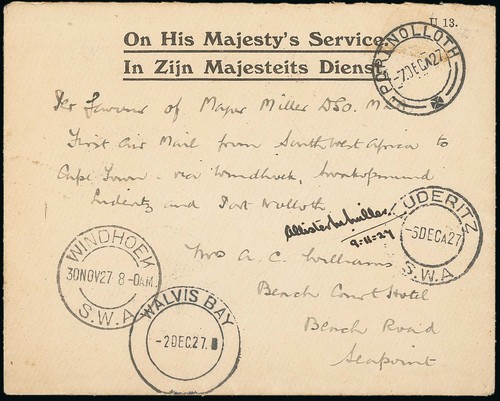 U 13.
On His Majesty's Service
In Zijn Majesteits Dienst
PORT NOLLOTH
-7DECA27
Per favour of Major Miller DSO.
First Air Mail from South West Africa to
Cape Town - via Windhoek, Swakopmund
Luderitz and Port Nolloth
Allister M Miller
9-11-27
UDERITZ
-5DECA27
S.W.A
WINDHOEK
30NOV27 8-0AM.
S.W.A
WALVIS BAY
-2DEC.27.
Mrs A. C. Williams
Beach Court Hotel
Beach Road
Seapoint